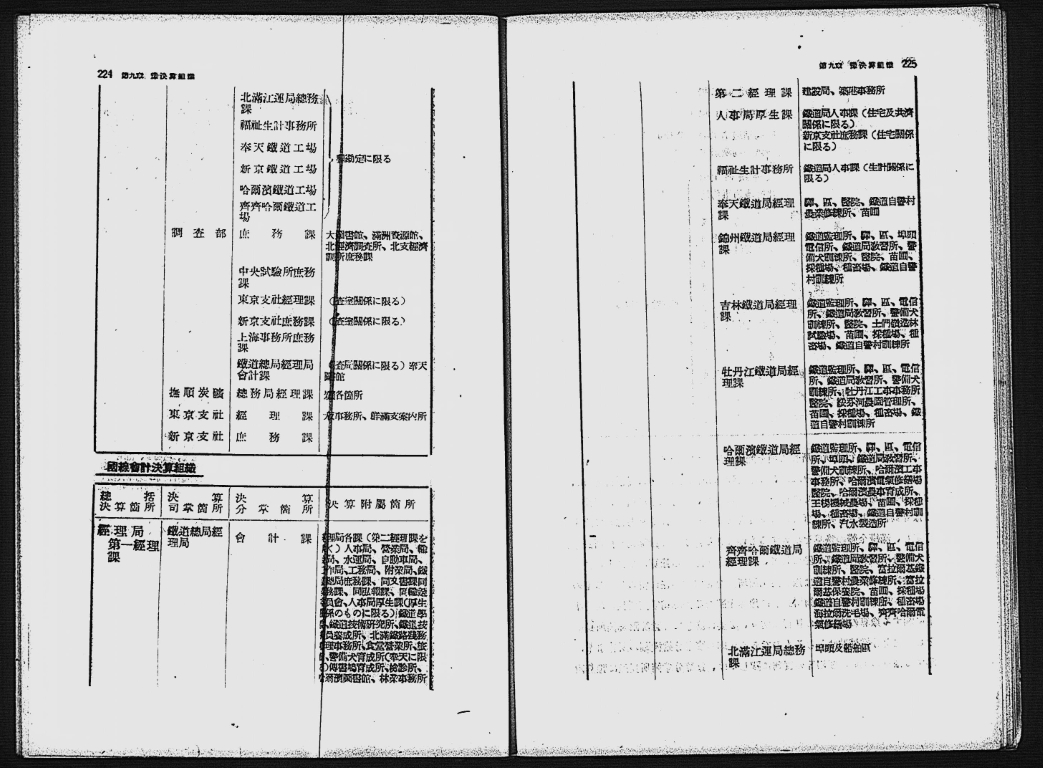 224 第九章 決算組織
北滿江運局總務
課
福祉生計事務所
奉天鐵道工場
新京鐵道工場
哈爾濱鐵道工場
齊齊哈爾鐵道工
場
勘定に限る
調査部 庶務課
北經濟調査所、北支經濟
調所庶務課
中央試驗所庶務
課
東京支社經理課
新京支社庶務課
上海事務所庶務
課
鐵道總局經理局
會計課
撫順炭礦 總務局經理課 各箇所
東京支社 經理課 事務所、鮮滿支案内所
新京支社 庶務課
國線會計決算組織
總括
決算箇所
決算
司掌箇所
決算
分掌箇所
決算附屬箇所
經理局
第一經理
課
鐵道總局經
理局
會計課
理局各課(第二經理課を
人事局、營業局、
局、水運局、自動車局、
局、工務局、附業局、
總局庶務課、同文書課同
員會、人事局厚生課(厚生
係のものに限る)
鐵道技術研究所、鐵道技
員養成所、北滿鐵路殘務
理事務所、食堂營業所、
、警備犬育成所(奉天に限
爾濱圖書館、林業事務所
第九章 決算組織 225
第二經理課 建設局、築港事務所
人事局厚生課 鐵道局人事課(住宅及共濟
關係に限る)
新京支社庶務課(住宅關係
に限る)
福祉生計事務所 鐵道局人事課(生計關係に
限る)
奉天鐵道局經理
課
驛、區、醫院、鐵道自警村
農業修練所、苗圃
錦州鐵道局經理
課
鐵道監理所、驛、區、埠頭
電信所、鐵道局敎習所、警
備犬訓練所、醫院、苗圃、
採種場、種畜場、鐵道自警
村訓練所
吉林鐵道局經理
課
鐵道監理所、驛、區、電信
所、鐵道局敎習所、警備犬
訓練所、醫院、土們嶺造林
試驗場、苗圃、採種場、種
畜場、鐵道自警村訓練所
牡丹江鐵道局經
理課
鐵道監理所、驛、區、電信
所、鐵道局敎習所、警備犬
訓練所、牡丹江工事事務所
醫院、綏芬河農園管理所、
苗圃、採種場、種畜場、鐵
道自警村訓練所
哈爾濱鐵道局經
理課
鐵道監理所、驛、區、電信
所、埠頭、鐵道局敎習所、
警備犬訓練所、哈爾濱工事
事務所、哈爾濱電氣修繕場
醫院、哈爾濱農事育成所、
王楊機械農場、苗圃、採種
場、種畜場、鐵道自警村訓
練所、汽水製造所
齊齊哈爾鐵道局
經理課
鐵道監理所、驛、區、電信
所、鐵道局敎習所、警備犬
訓練所、醫院、富拉爾基鐵
道自警村農業修練所、富拉
爾基保養院、苗圃、採種場
鐵道自警村訓練所、種畜場
海拉爾洗毛場、齊齊哈爾電
氣修繕場
北滿江運局總務
課
埠頭及船舶區